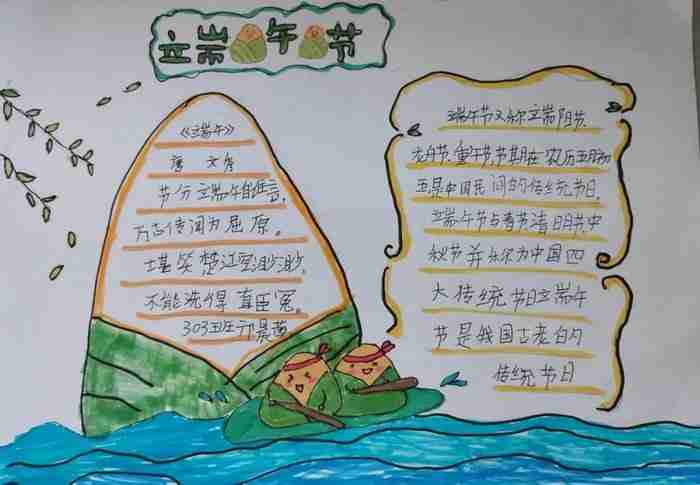 端午节
《端午》
唐 文秀
节分端午自谁言,
万古传闻为屈原。
堪笑楚江空渺渺,
不能洗得直臣冤。
303班
端午节又称端阳节.
龙舟节.重午节,节期在农历五月初
五是中国民间的传统节日.
端午节与春节清明节中
秋节并称为中国四
大传统节日端午
节是我国古老的
传统节日